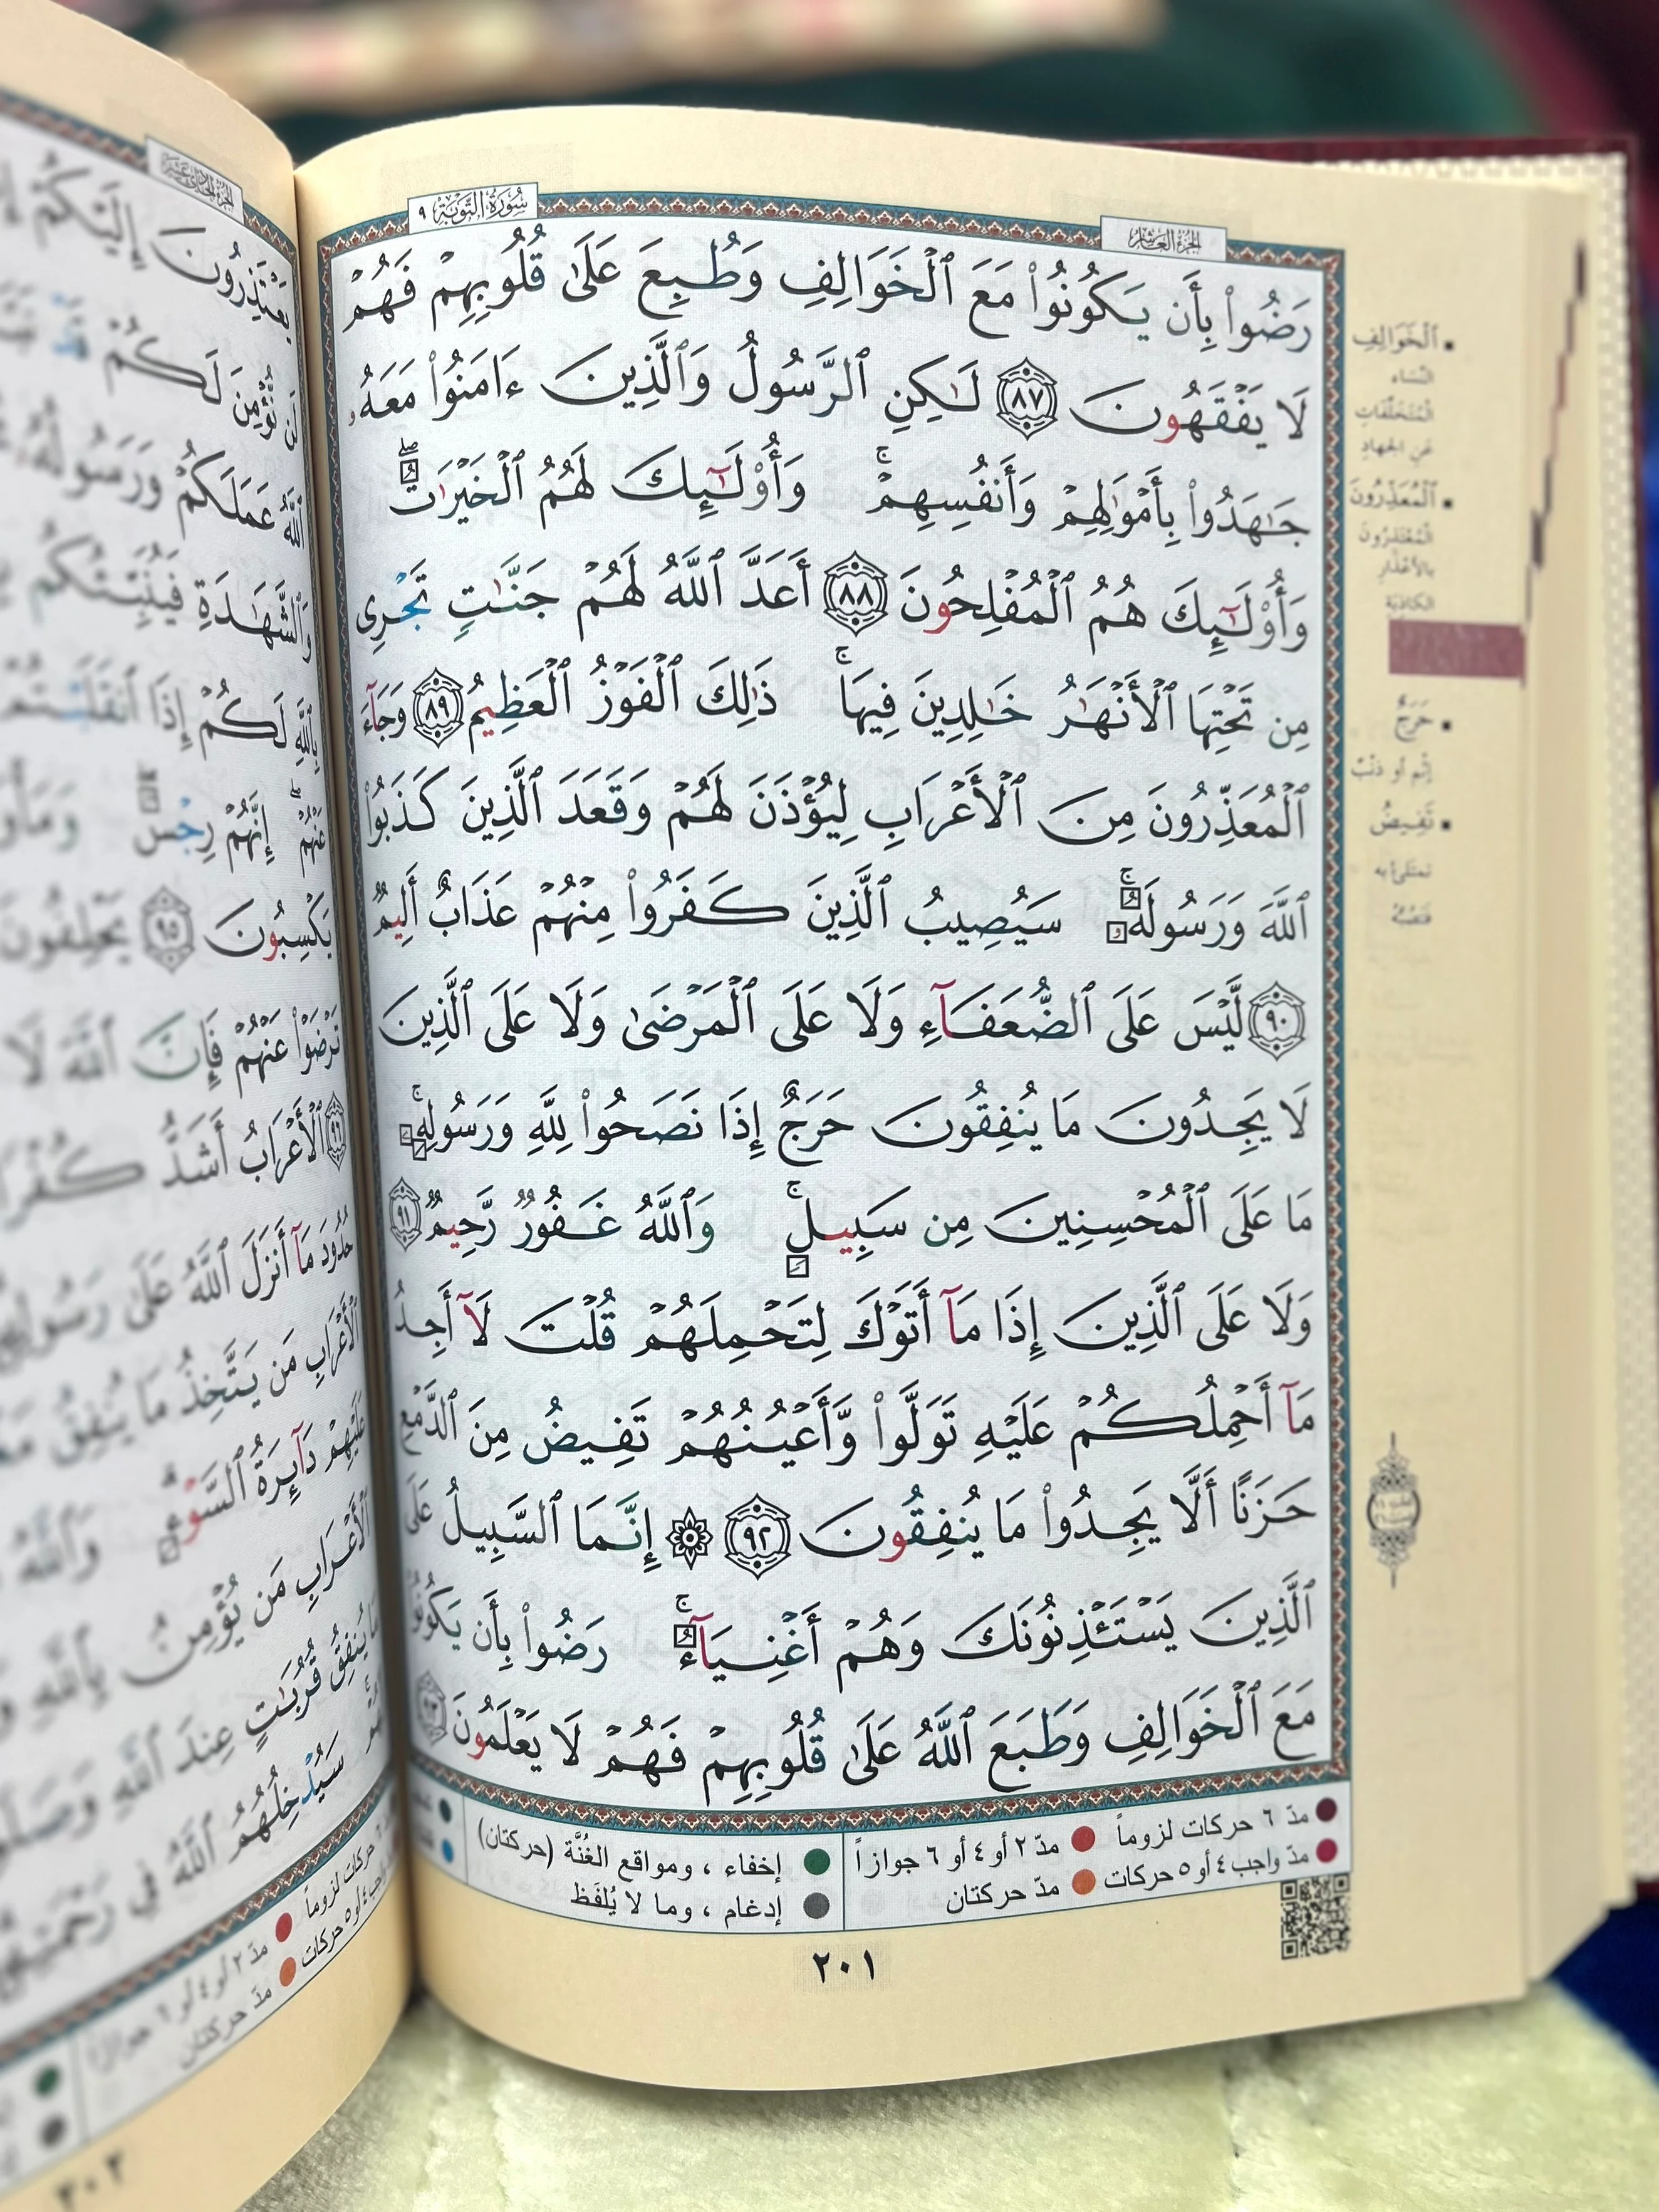 سُورَةُ التَّوْبَةِ ٩
الجزء العاشر
رَضُوا۟ بِأَن يَكُونُوا۟ مَعَ ٱلْخَوَالِفِ وَطُبِعَ عَلَىٰ قُلُوبِهِمْ فَهُمْ
لَا يَفْقَهُونَ ٨٧ لَٰكِنِ ٱلرَّسُولُ وَٱلَّذِينَ ءَامَنُوا۟ مَعَهُۥ
جَٰهَدُوا۟ بِأَمْوَٰلِهِمْ وَأَنفُسِهِمْ ۚ وَأُو۟لَٰٓئِكَ لَهُمُ ٱلْخَيْرَٰتُ ۖ
وَأُو۟لَٰٓئِكَ هُمُ ٱلْمُفْلِحُونَ ٨٨ أَعَدَّ ٱللَّهُ لَهُمْ جَنَّٰتٍ تَجْرِى
مِن تَحْتِهَا ٱلْأَنْهَٰرُ خَٰلِدِينَ فِيهَا ۚ ذَٰلِكَ ٱلْفَوْزُ ٱلْعَظِيمُ ٨٩ وَجَآءَ
ٱلْمُعَذِّرُونَ مِنَ ٱلْأَعْرَابِ لِيُؤْذَنَ لَهُمْ وَقَعَدَ ٱلَّذِينَ كَذَبُوا۟
ٱللَّهَ وَرَسُولَهُۥ ۚ سَيُصِيبُ ٱلَّذِينَ كَفَرُوا۟ مِنْهُمْ عَذَابٌ أَلِيمٌ
٩٠ لَّيْسَ عَلَى ٱلضُّعَفَآءِ وَلَا عَلَى ٱلْمَرْضَىٰ وَلَا عَلَى ٱلَّذِينَ
لَا يَجِدُونَ مَا يُنفِقُونَ حَرَجٌ إِذَا نَصَحُوا۟ لِلَّهِ وَرَسُولِهِۦ ۚ
مَا عَلَى ٱلْمُحْسِنِينَ مِن سَبِيلٍ ۚ وَٱللَّهُ غَفُورٌ رَّحِيمٌ ٩١
وَلَا عَلَى ٱلَّذِينَ إِذَا مَآ أَتَوْكَ لِتَحْمِلَهُمْ قُلْتَ لَآ أَجِدُ
مَآ أَحْمِلُكُمْ عَلَيْهِ تَوَلَّوا۟ وَّأَعْيُنُهُمْ تَفِيضُ مِنَ ٱلدَّمْعِ
حَزَنًا أَلَّا يَجِدُوا۟ مَا يُنفِقُونَ ٩٢ ۞ إِنَّمَا ٱلسَّبِيلُ عَلَى
ٱلَّذِينَ يَسْتَـْٔذِنُونَكَ وَهُمْ أَغْنِيَآءُ ۚ رَضُوا۟ بِأَن يَكُونُوا۟
مَعَ ٱلْخَوَالِفِ وَطَبَعَ ٱللَّهُ عَلَىٰ قُلُوبِهِمْ فَهُمْ لَا يَعْلَمُونَ ٩٣
ٱلْخَوَالِفِ
النّساء
المتخلّفات
عن الجهاد
ٱلْمُعَذِّرُونَ
المعتذرون
بالأعذار
الكاذبة
حَرَجٌ
إثم أو ذنب
تَفِيضُ
تمتلئ به
فتصبّه
مدّ ٦ حركات لزوماً
مدّ ٢ أو ٤ أو ٦ جوازاً
إخفاء ، ومواقع الغُنَّة (حركتان)
مدّ واجب ٤ أو ٥ حركات
مدّ حركتان
إدغام ، وما لا يُلفَظ
٢٠١
الجزء الحادي عشر
يَعْتَذِرُونَ إِلَيْكُمْ
لَن نُّؤْمِنَ لَكُمْ قَدْ
ٱللَّهُ عَمَلَكُمْ وَرَسُولُهُۥ
وَٱلشَّهَٰدَةِ فَيُنَبِّئُكُم
بِٱللَّهِ لَكُمْ إِذَا ٱنقَلَبْتُمْ
عَنْهُمْ ۖ إِنَّهُمْ رِجْسٌ ۖ
يَكْسِبُونَ ٩٥ يَحْلِفُونَ
تَرْضَوْا۟ عَنْهُمْ فَإِنَّ ٱللَّهَ لَا
٩٦ ٱلْأَعْرَابُ أَشَدُّ كُفْرًا
حُدُودَ مَآ أَنزَلَ ٱللَّهُ عَلَىٰ رَسُولِهِۦ
ٱلْأَعْرَابِ مَن يَتَّخِذُ مَا يُنفِقُ
عَلَيْهِمْ دَآئِرَةُ ٱلسَّوْءِ ۗ وَٱللَّهُ
ٱلْأَعْرَابِ مَن يُؤْمِنُ بِٱللَّهِ
مَا يُنفِقُ قُرُبَٰتٍ عِندَ ٱللَّهِ
سَيُدْخِلُهُمُ ٱللَّهُ فِى رَحْمَتِهِۦٓ
حركات لزوماً
مدّ ٢ أو ٤ أو ٦ جوازاً
واجب ٤ أو ٥ حركات
مدّ حركتان
٢٠٢